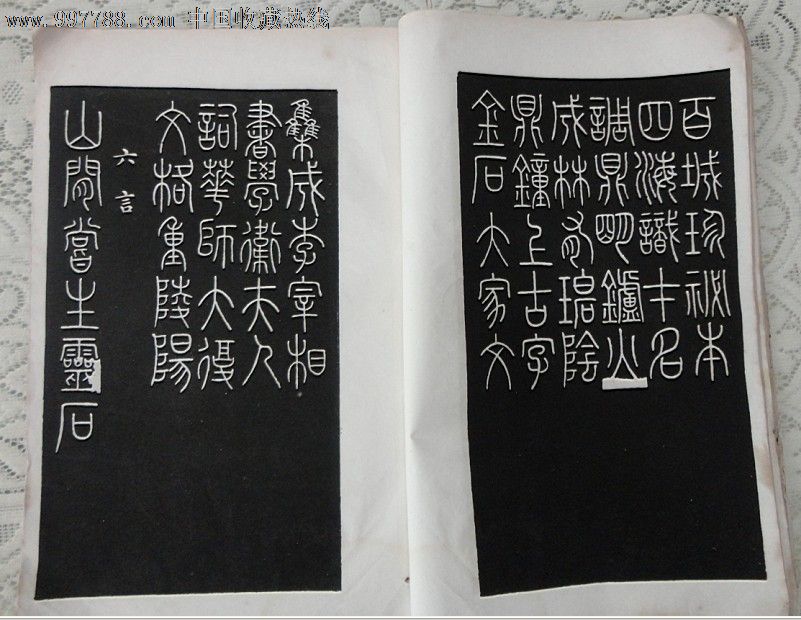 www.997788.com 中国收藏热线
百城珍祕本
四海識才名
調鼎明鑪火
成林陰
鼎鐘上古字
金石大家文
雧成李宰相
書學衛夫人
詞華師大復
文格重陵陽
六言
山閒靈石